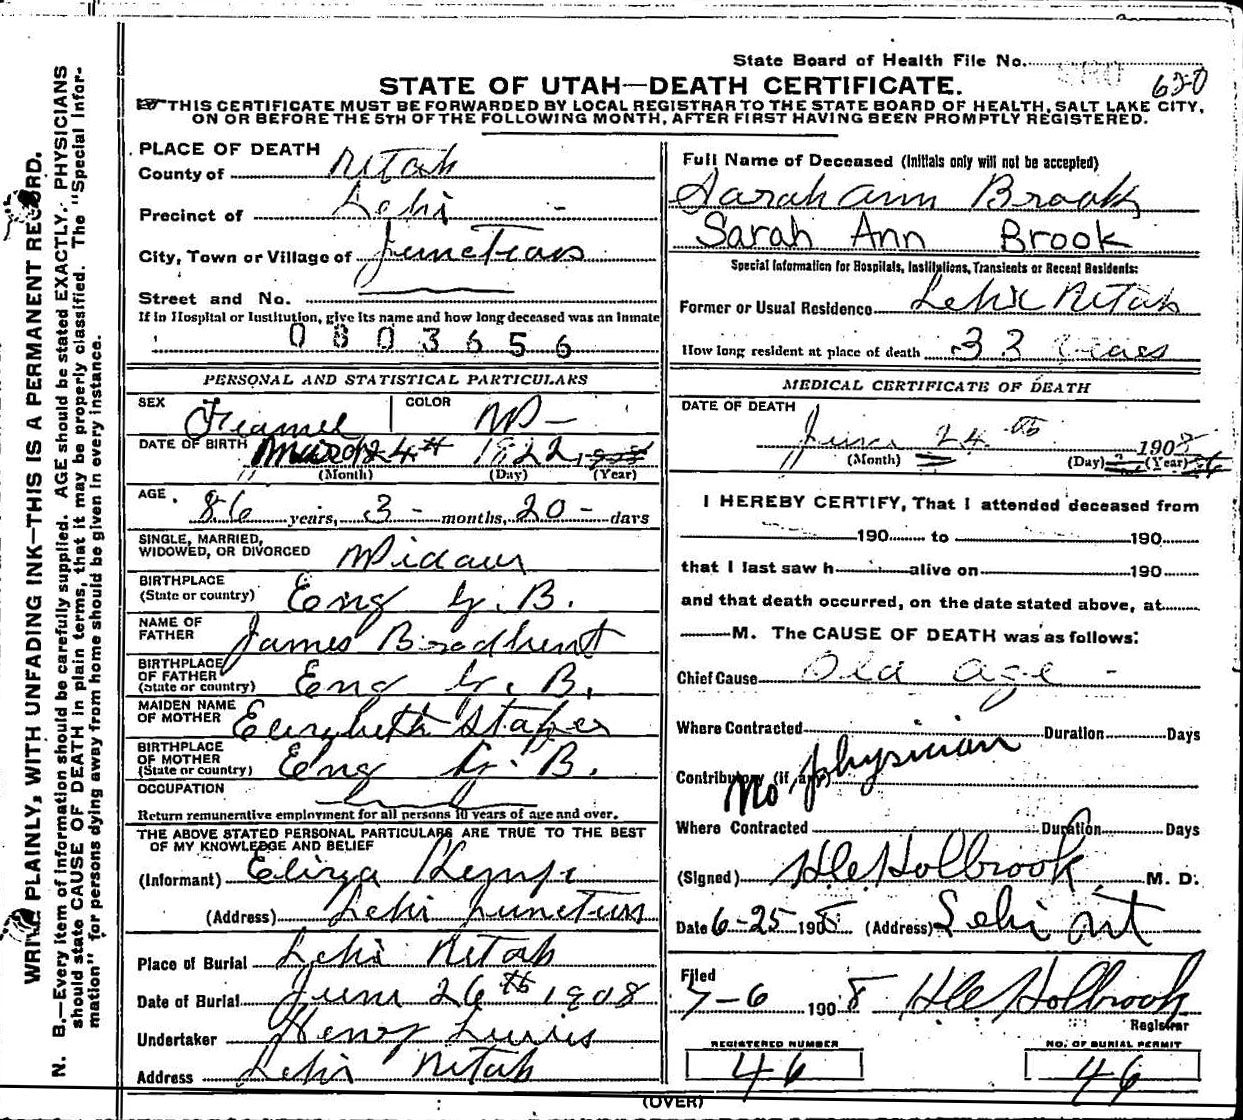 State Board of Health File No. 620
STATE OF UTAH—DEATH CERTIFICATE.
THIS CERTIFICATE MUST BE FORWARDED BY LOCAL REGISTRAR TO THE STATE BOARD OF HEALTH, SALT LAKE CITY,
ON OR BEFORE THE 5TH OF THE FOLLOWING MONTH, AFTER FIRST HAVING BEEN PROMPTLY REGISTERED.
WRITE PLAINLY, WITH UNFADING INK—THIS IS A PERMANENT RECORD.
N. B.—Every item of information should be carefully supplied. AGE should be stated EXACTLY. PHYSICIANS
should state CAUSE OF DEATH in plain terms, that it may be properly classified. The "Special Infor-
mation" for persons dying away from home should be given in every instance.
PLACE OF DEATH
County of Utah
Precinct of Lehi -
City, Town or Village of Junction
Street and No.
If in Hospital or Institution, give its name and how long deceased was an inmate
0803656
PERSONAL AND STATISTICAL PARTICULARS
SEX
COLOR W-
DATE OF BIRTH March 24th 1822
(Month) (Day) (Year)
AGE 86 years, 3 - months, 20 - days
SINGLE, MARRIED,
WIDOWED, OR DIVORCED
BIRTHPLACE
(State or country) Eng G. B.
NAME OF
FATHER James Brodbent
BIRTHPLACE
OF FATHER
(State or country) Eng G. B.
MAIDEN NAME
OF MOTHER
BIRTHPLACE
OF MOTHER
(State or country) Eng G. B.
OCCUPATION
Return remunerative employment for all persons 10 years of age and over.
THE ABOVE STATED PERSONAL PARTICULARS ARE TRUE TO THE BEST
OF MY KNOWLEDGE AND BELIEF
(Informant) Eliza
(Address) Lehi Junction
Place of Burial Lehi Utah
Date of Burial June 26th 1908
Undertaker Henry Lewis
Address Lehi Utah
Full Name of Deceased (Initials only will not be accepted)
Sarah Ann Brook
Sarah Ann Brook
Special Information for Hospitals, Institutions, Transients or Recent Residents:
Former or Usual Residence Lehi Utah
How long resident at place of death 33 Years
MEDICAL CERTIFICATE OF DEATH
DATE OF DEATH
June 24 th 1908
(Month) (Day) (Year)
I HEREBY CERTIFY, That I attended deceased from
190 to 190
that I last saw h alive on 190
and that death occurred, on the date stated above, at
M. The CAUSE OF DEATH was as follows:
Chief Cause Old age -
Where Contracted Duration Days
Contributory (if any) No physician
Where Contracted Duration Days
(Signed) Holbrook M. D.
Date 6-25 1908 (Address) Lehi Ut
Filed
7-6 1908 Holbrook
Registrar
REGISTERED NUMBER
46
NO. OF BURIAL PERMIT
46
(OVER)